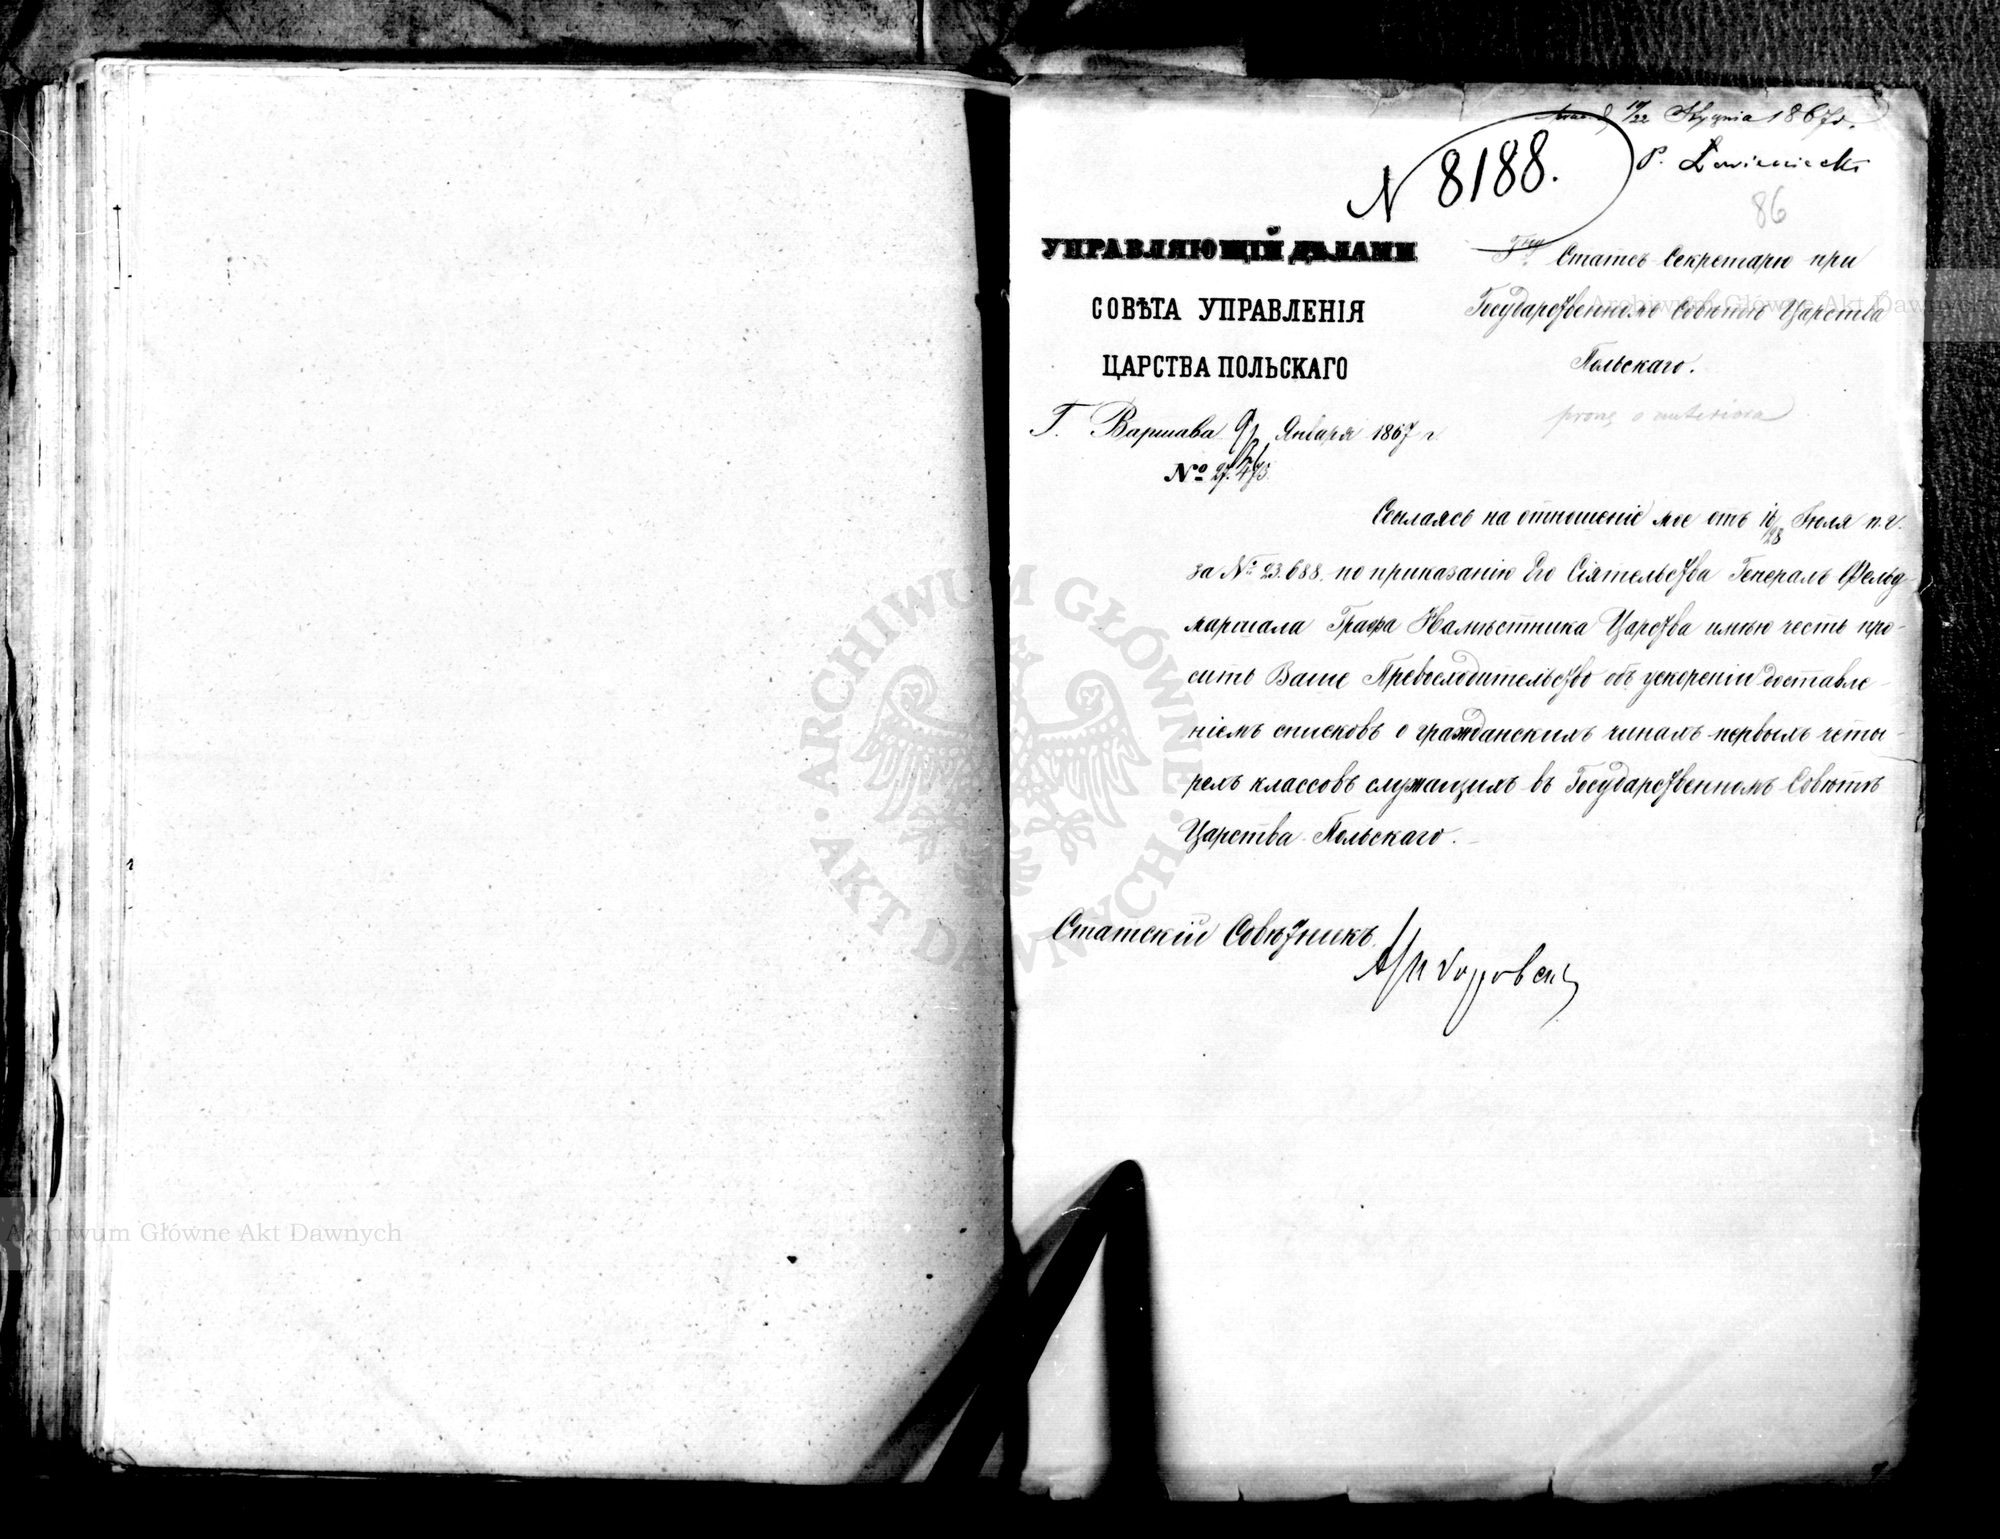 10/22 Stycznia 1867 r.
N 8188.
P.
86
УПРАВЛЯЮЩІЙ ДѢЛАМИ
СОВѢТА УПРАВЛЕНІЯ
ЦАРСТВА ПОЛЬСКАГО
Г. Варшава 9/21 Января 1867 г.
№ 27.473
Гну Статсъ Секретарю при
Государственномъ Совѣтѣ Царства
Польскаго.
proszę o
Ссылаясь на отношеніе мое отъ 16/28 Іюля п.г.
за № 23.688. по приказанію Его Сіятельства Генералъ Фельд-
маршала Графа Намѣстника Царства имѣю честь про-
сить Ваше Превосходительство объ ускореніи доставле-
ніемъ списковъ о гражданскихъ чинахъ первыхъ четы-
рехъ классовъ служащихъ въ Государственномъ Совѣтѣ
Царства Польскаго.
Статскій Совѣтникъ
ARCHIWUM GŁÓWNE AKT DAWNYCH
Archiwum Główne Akt Dawnych
Archiwum Główne Akt Dawnych